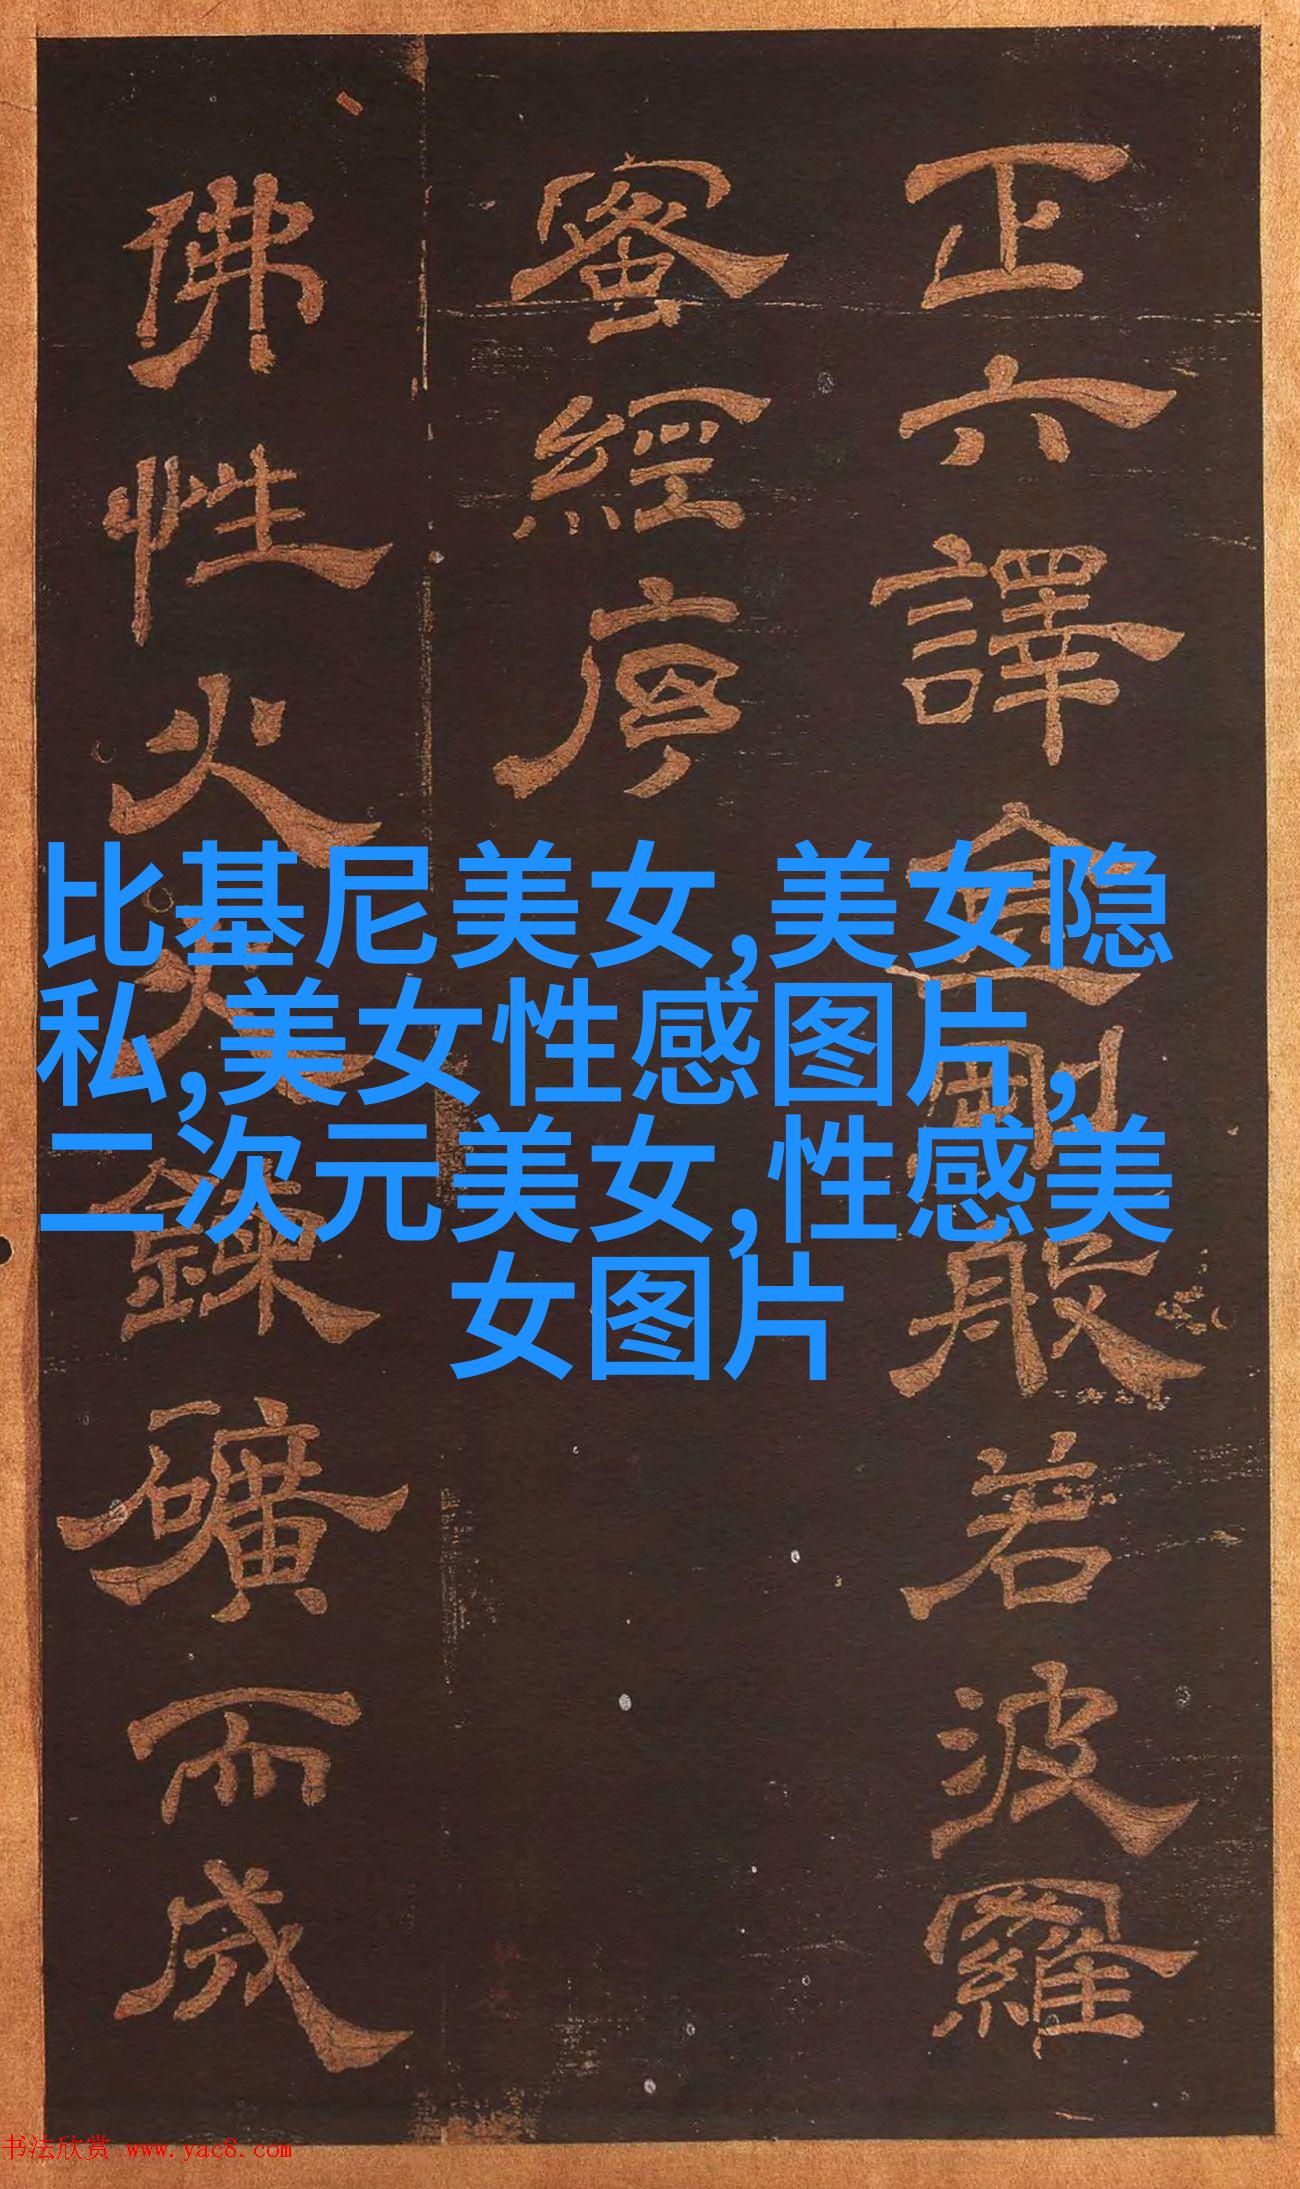 正六譯金剛般若波羅
蜜經序
佛性火鍊礦而成
比基尼美女,美女隐
私,美女性感图片,
二次元美女,性感美
女图片
书法欣赏 www.yac8.com